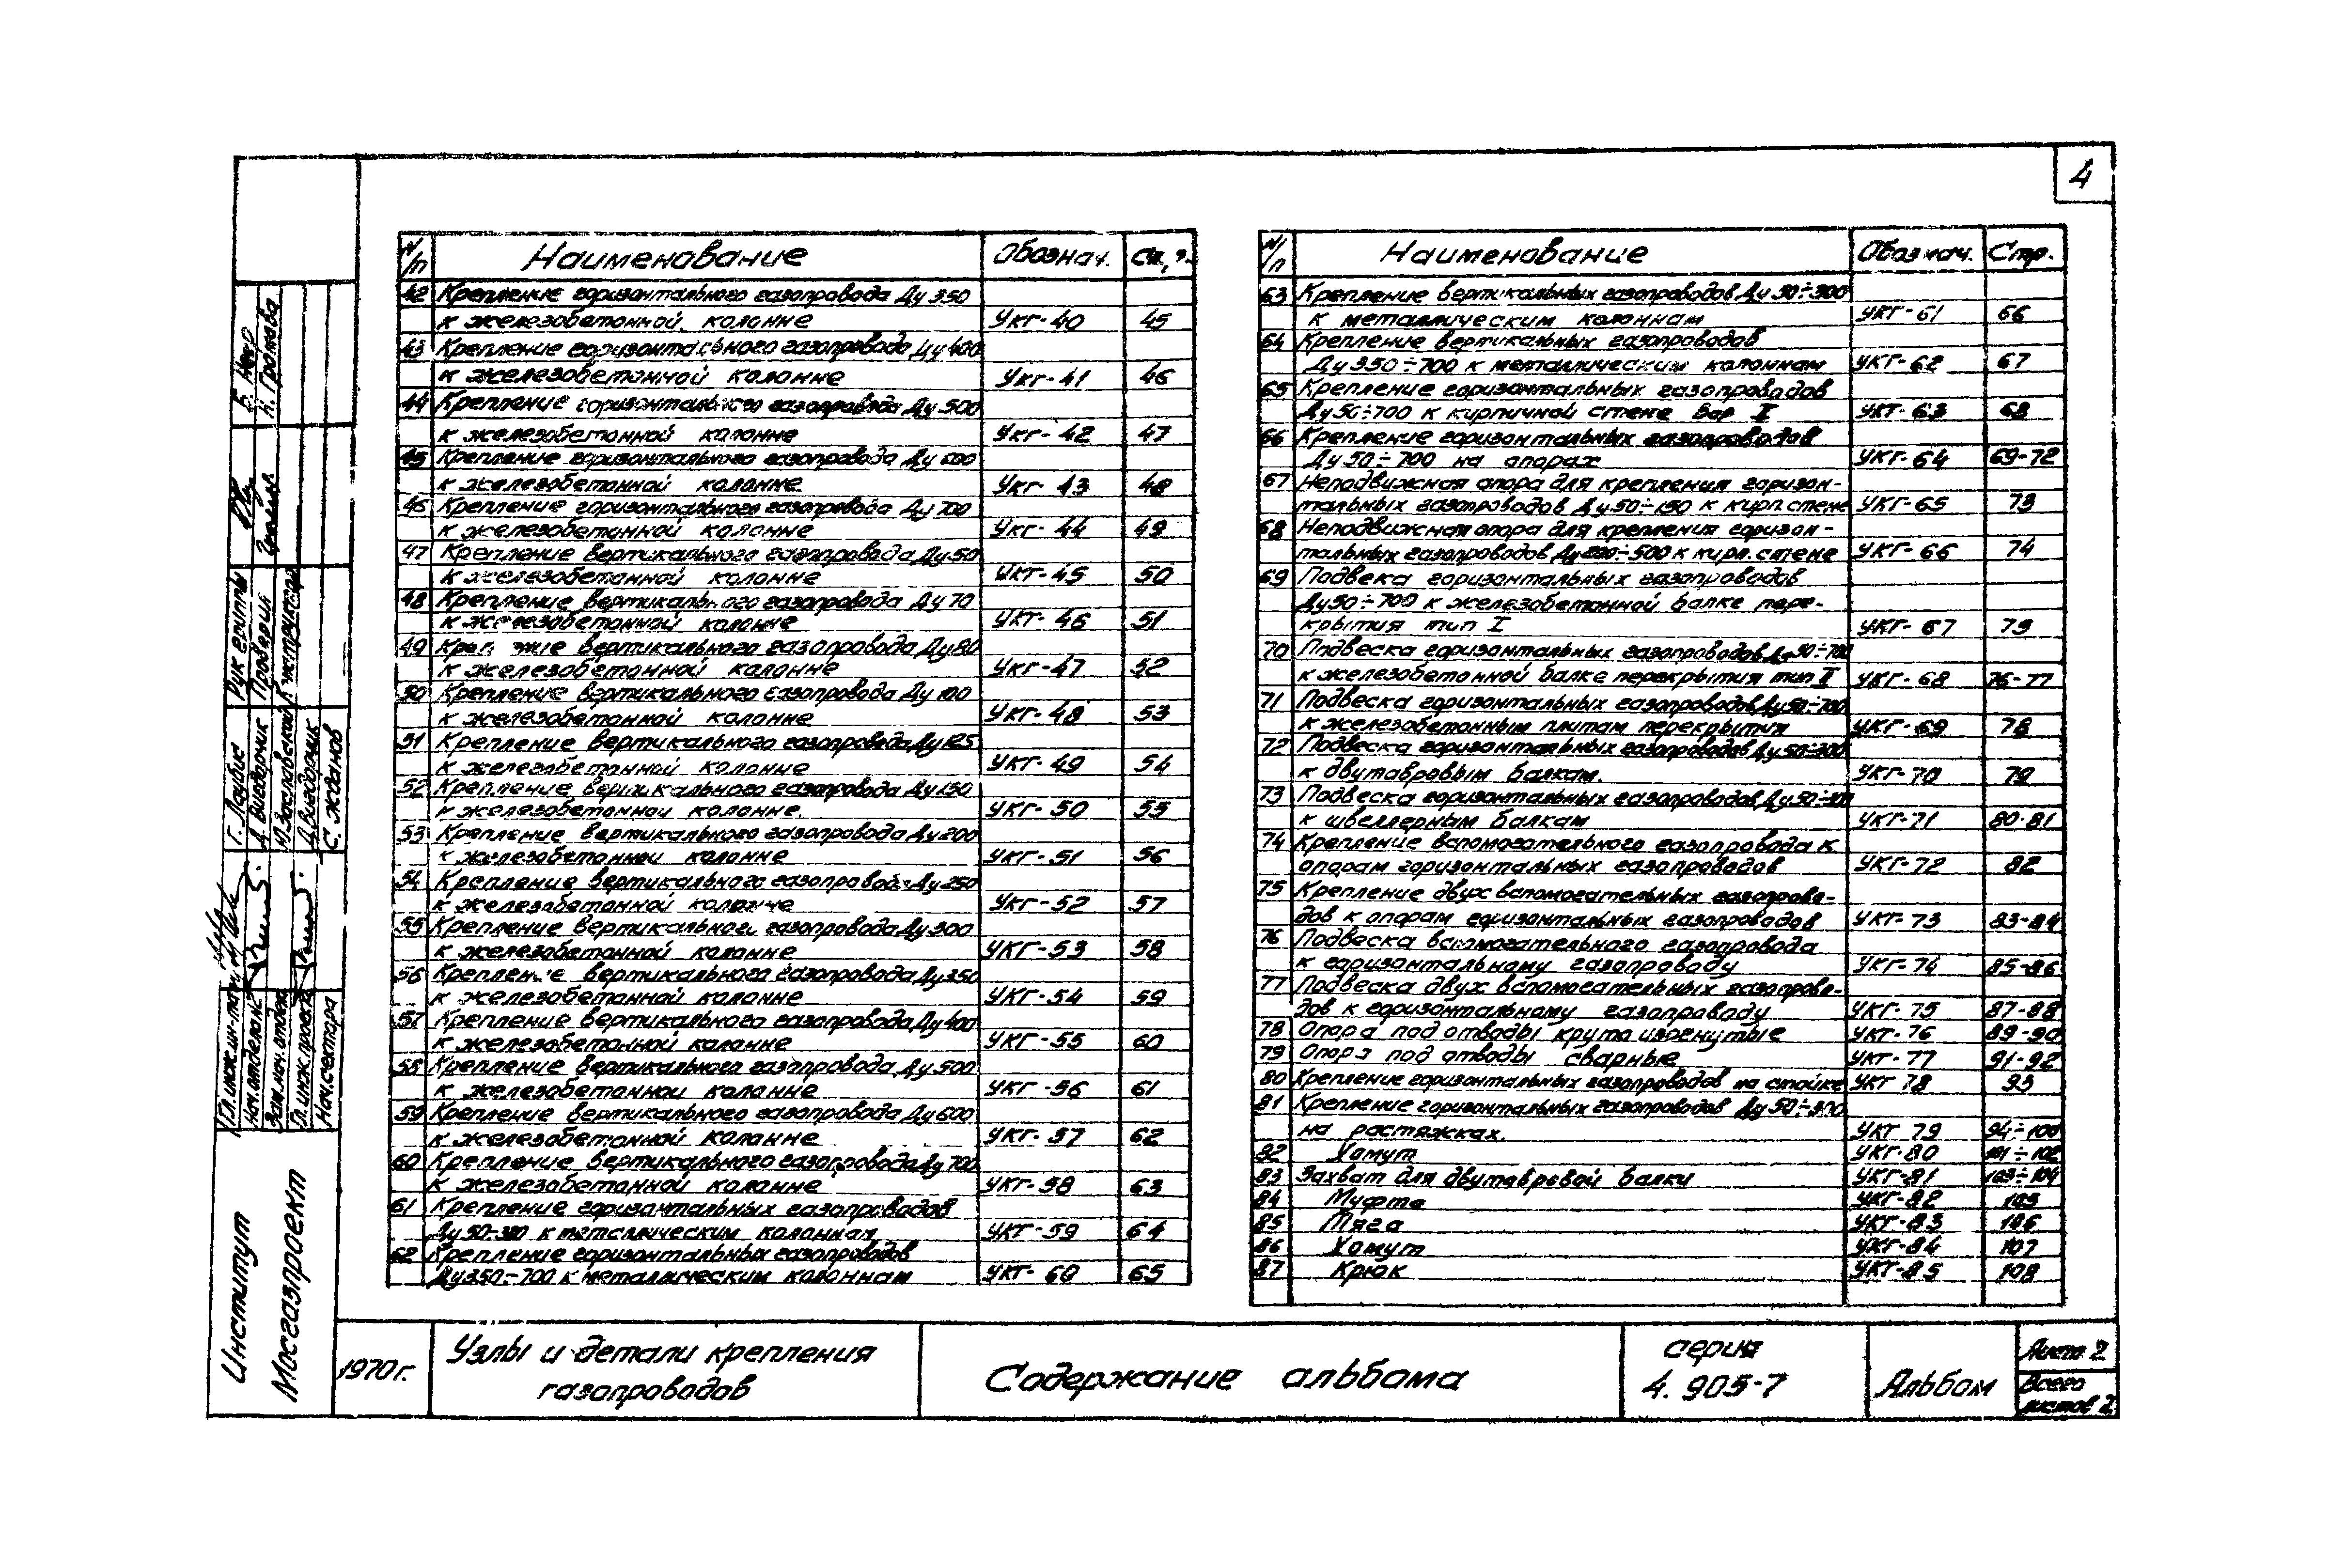 4
N/п Наименование Обознач. Ст.
42 Крепление горизонтального газопровода Ду 350
к железобетонной колонне УКГ-40 45
43 Крепление горизонтального газопровода Ду 400
к железобетонной колонне УКГ-41 46
44 Крепление горизонтального газопровода Ду 500
к железобетонной колонне УКГ-42 47
45 Крепление горизонтального газопровода Ду 600
к железобетонной колонне УКГ-43 48
46 Крепление горизонтального газопровода Ду 700
к железобетонной колонне УКГ-44 49
47 Крепление вертикального газопровода Ду 50
к железобетонной колонне УКГ-45 50
48 Крепление вертикального газопровода Ду 70
к железобетонной колонне УКГ-46 51
49 Крепление вертикального газопровода Ду 80
к железобетонной колонне УКГ-47 52
50 Крепление вертикального газопровода Ду 100
к железобетонной колонне УКГ-48 53
51 Крепление вертикального газопровода Ду 125
к железобетонной колонне УКГ-49 54
52 Крепление вертикального газопровода Ду 150
к железобетонной колонне. УКГ-50 55
53 Крепление вертикального газопровода Ду 200
к железобетонной колонне УКГ-51 56
54 Крепление вертикального газопровода Ду 250
к железобетонной колонне УКГ-52 57
55 Крепление вертикального газопровода Ду 300
к железобетонной колонне УКГ-53 58
56 Крепление вертикального газопровода Ду 350
к железобетонной колонне УКГ-54 59
57 Крепление вертикального газопровода Ду 400
к железобетонной колонне УКГ-55 60
58 Крепление вертикального газопровода Ду 500
к железобетонной колонне УКГ-56 61
59 Крепление вертикального газопровода Ду 600
к железобетонной колонне УКГ-57 62
60 Крепление вертикального газопровода Ду 700
к железобетонной колонне УКГ-58 63
61 Крепление горизонтальных газопроводов
Ду 50-300 к металлическим колоннам УКГ-59 64
62 Крепление горизонтальных газопроводов
Ду 350-700 к металлическим колоннам УКГ-60 65
N/п Наименование Обознач. Стр.
63 Крепление вертикальных газопроводов Ду 50÷300
к металлическим колоннам УКГ-61 66
64 Крепление вертикальных газопроводов
Ду 350÷700 к металлическим колоннам УКГ-62 67
65 Крепление горизонтальных газопроводов
Ду 50÷700 к кирпичной стене Вар I УКГ-63 68
66 Крепление горизонтальных газопроводов
Ду 50÷700 на опорах УКГ-64 69-72
67 Неподвижная опора для крепления горизон-
тальных газопроводов Ду 50÷150 к кирп. стене УКГ-65 73
68 Неподвижная опора для крепления горизон-
тальных газопроводов Ду 200÷500 к кирп. стене УКГ-66 74
69 Подвека горизонтальных газопроводов
Ду 50÷700 к железобетонной балке пере-
крытия тип I УКГ-67 75
70 Подвеска горизонтальных газопроводов Ду 50÷700
к железобетонной балке перекрытия тип II УКГ-68 76-77
71 Подвеска горизонтальных газопроводов Ду 50÷700
к железобетонным плитам перекрытия УКГ-69 78
72 Подвеска горизонтальных газопроводов Ду 50÷300
к двутавровым балкам. УКГ-70 79
73 Подвеска горизонтальных газопроводов Ду 50÷300
к швеллерным балкам УКГ-71 80-81
74 Крепление вспомогательного газопровода к
опорам горизонтальных газопроводов УКГ-72 82
75 Крепление двух вспомогательных газопрово-
дов к опорам горизонтальных газопроводов УКГ-73 83-84
76 Подвеска вспомогательного газопровода
к горизонтальному газопроводу УКГ-74 85-86
77 Подвеска двух вспомогательных газопрово-
дов к горизонтальному газопроводу УКГ-75 87-88
78 Опора под отводы круто изогнутые УКГ-76 89-90
79 Опора под отводы сварные УКГ-77 91-92
80 Крепление горизонтальных газопроводов на стойке УКГ 78 93
81 Крепление горизонтальных газопроводов Ду 50÷300
на растяжках. УКГ 79 94÷100
82 Хомут УКГ-80 101÷102
83 Захват для двутавровой балки УКГ-81 103÷104
84 Муфта УКГ-82 105
85 Тяга УКГ-83 106
86 Хомут УКГ-84 107
87 Крюк УКГ-85 108
Институт
Мосгазпроект
Нач. отделения Д. Выгодчик Проверил
Зам. нач. отдела Ю. Заславский
Гл. инж. проекта Д. Выгодчик
Нач. сектора С. Жданов
Рук группы
1970 г.
Узлы и детали крепления
газопроводов
Содержание альбома
серия
4. 905-7
Альбом
Лист 2
Всего
листов 2